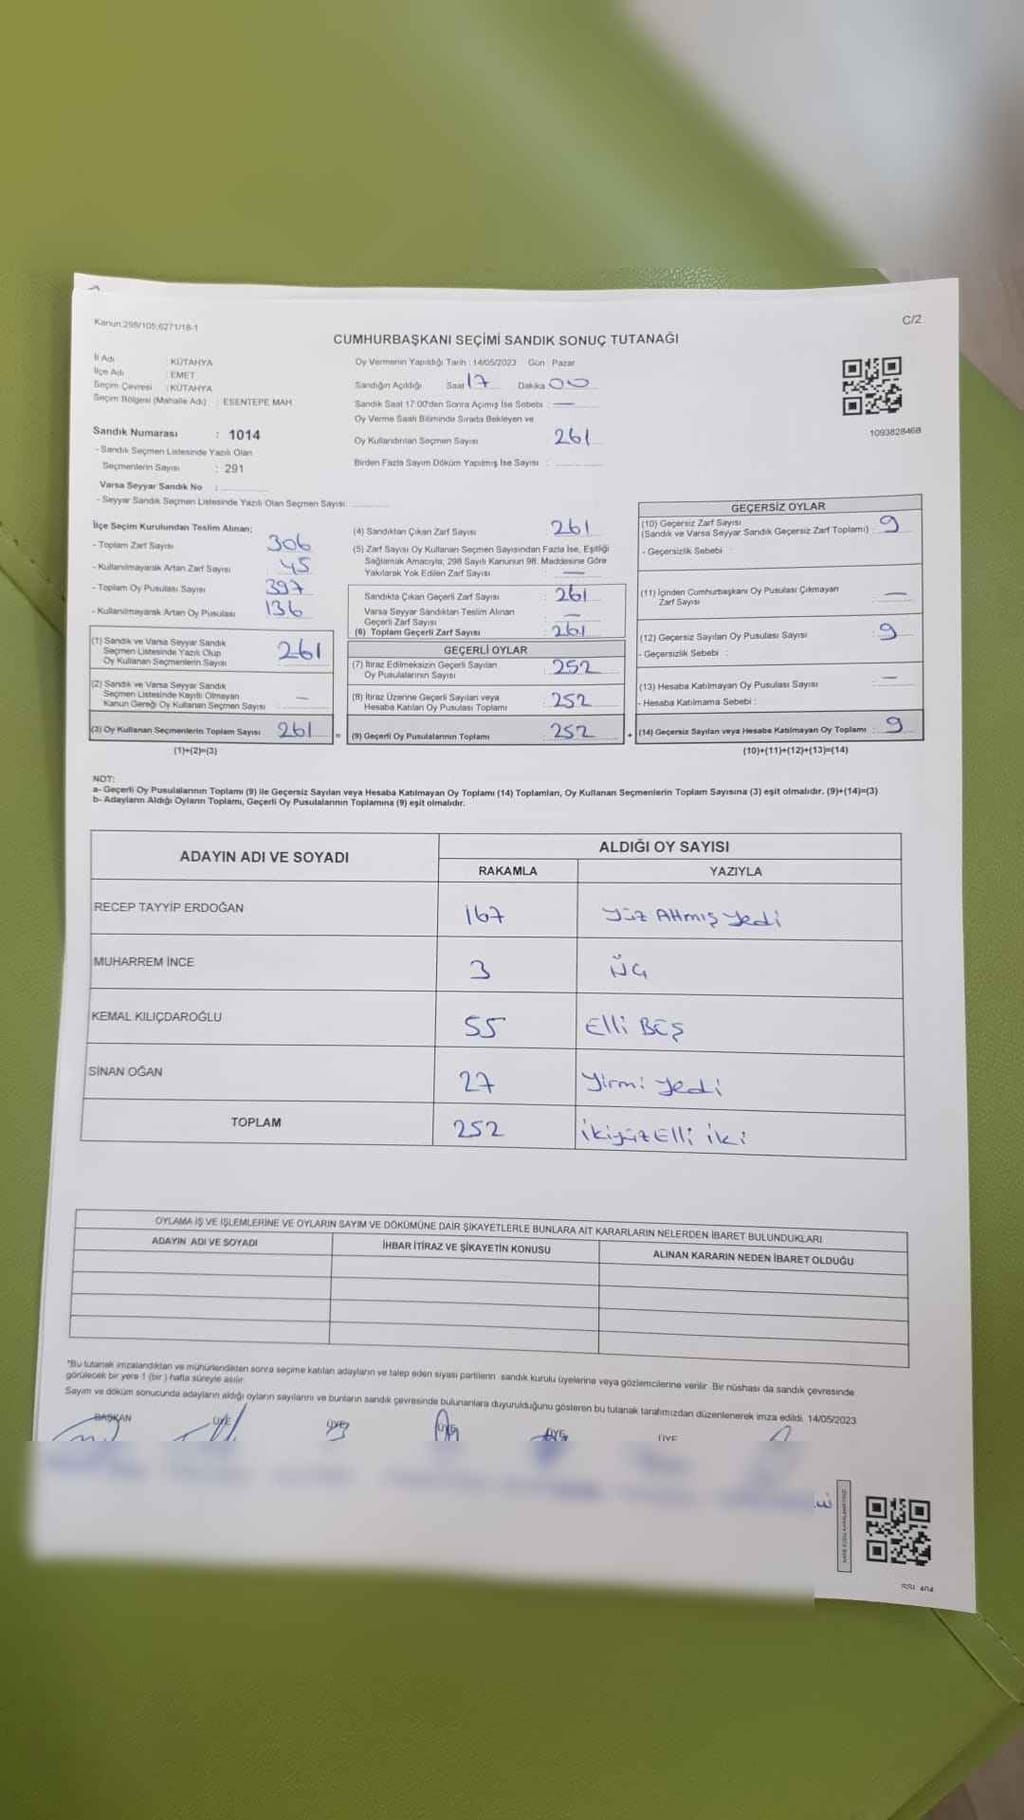 Kanun:298/105;6271/18-1
C/2
CUMHURBAŞKANI SEÇİMİ SANDIK SONUÇ TUTANAĞI
İl Adı : KÜTAHYA
İlçe Adı : EMET
Seçim Çevresi : KÜTAHYA
Seçim Bölgesi (Mahalle Adı) : ESENTEPE MAH.
Sandık Numarası : 1014
- Sandık Seçmen Listesinde Yazılı Olan
Seçmenlerin Sayısı : 291
Varsa Seyyar Sandık No :
- Seyyar Sandık Seçmen Listesinde Yazılı Olan Seçmen Sayısı:
Oy Vermenin Yapıldığı Tarih : 14/05/2023 Gün : Pazar
Sandığın Açıldığı Saat 17 Dakika 00
Sandık Saat 17:00'den Sonra Açılmış İse Sebebi : —
Oy Verme Saati Bitiminde Sırada Bekleyen ve
Oy Kullandırılan Seçmen Sayısı 261
Birden Fazla Sayım Döküm Yapılmış İse Sayısı :
1093828468
İlçe Seçim Kurulundan Teslim Alınan;
- Toplam Zarf Sayısı 306
- Kullanılmayarak Artan Zarf Sayısı 45
- Toplam Oy Pusulası Sayısı 397
- Kullanılmayarak Artan Oy Pusulası 136
(1) Sandık ve Varsa Seyyar Sandık
Seçmen Listesinde Yazılı Olup
Oy Kullanan Seçmenlerin Sayısı 261
(2) Sandık ve Varsa Seyyar Sandık
Seçmen Listesinde Kayıtlı Olmayan
Kanun Gereği Oy Kullanan Seçmen Sayısı —
(3) Oy Kullanan Seçmenlerin Toplam Sayısı 261
(1)+(2)=(3)
(4) Sandıktan Çıkan Zarf Sayısı 261
(5) Zarf Sayısı Oy Kullanan Seçmen Sayısından Fazla İse, Eşitliği
Sağlamak Amacıyla; 298 Sayılı Kanunun 98. Maddesine Göre
Yakılarak Yok Edilen Zarf Sayısı —
Sandıkta Çıkan Geçerli Zarf Sayısı : 261
Varsa Seyyar Sandıktan Teslim Alınan
Geçerli Zarf Sayısı : —
(6) Toplam Geçerli Zarf Sayısı : 261
GEÇERLİ OYLAR
(7) İtiraz Edilmeksizin Geçerli Sayılan
Oy Pusulalarının Sayısı : 252
(8) İtiraz Üzerine Geçerli Sayılan veya
Hesaba Katılan Oy Pusulası Toplamı : 252
= (9) Geçerli Oy Pusulalarının Toplamı : 252
GEÇERSİZ OYLAR
(10) Geçersiz Zarf Sayısı
(Sandık ve Varsa Seyyar Sandık Geçersiz Zarf Toplamı) : 9
- Geçersizlik Sebebi :
(11) İçinden Cumhurbaşkanı Oy Pusulası Çıkmayan
Zarf Sayısı : —
(12) Geçersiz Sayılan Oy Pusulası Sayısı : 9
- Geçersizlik Sebebi :
(13) Hesaba Katılmayan Oy Pusulası Sayısı : —
- Hesaba Katılmama Sebebi :
+ (14) Geçersiz Sayılan veya Hesaba Katılmayan Oy Toplamı : 9
(10)+(11)+(12)+(13)=(14)
NOT:
a- Geçerli Oy Pusulalarının Toplamı (9) ile Geçersiz Sayılan veya Hesaba Katılmayan Oy Toplamı (14) Toplamları, Oy Kullanan Seçmenlerin Toplam Sayısına (3) eşit olmalıdır. (9)+(14)=(3)
b- Adayların Aldığı Oyların Toplamı, Geçerli Oy Pusulalarının Toplamına (9) eşit olmalıdır.
ADAYIN ADI VE SOYADI
ALDIĞI OY SAYISI
RAKAMLA YAZIYLA
RECEP TAYYİP ERDOĞAN 167 Yüz Altmış Yedi
MUHARREM İNCE 3 Üç
KEMAL KILIÇDAROĞLU 55 Elli Beş
SİNAN OĞAN 27 Yirmi Yedi
TOPLAM 252 İkiyüz Elli iki
OYLAMA İŞ VE İŞLEMLERİNE VE OYLARIN SAYIM VE DÖKÜMÜNE DAİR ŞİKAYETLERLE BUNLARA AİT KARARLARIN NELERDEN İBARET BULUNDUKLARI
ADAYIN ADI VE SOYADI İHBAR İTİRAZ VE ŞİKAYETİN KONUSU ALINAN KARARIN NEDEN İBARET OLDUĞU
*Bu tutanak imzalandıktan ve mühürlendikten sonra seçime katılan adayların ve talep eden siyasi partilerin sandık kurulu üyelerine veya gözlemcilerine verilir. Bir nüshası da sandık çevresinde
görülecek bir yere 1 (bir ) hafta süreyle asılır.
Sayım ve döküm sonucunda adayların aldığı oyların sayılarını ve bunların sandık çevresinde bulunanlara duyurulduğunu gösteren bu tutanak tarafımızdan düzenlenerek imza edildi. 14/05/2023
BAŞKAN ÜYE ÜYE ÜYE ÜYE ÜYE